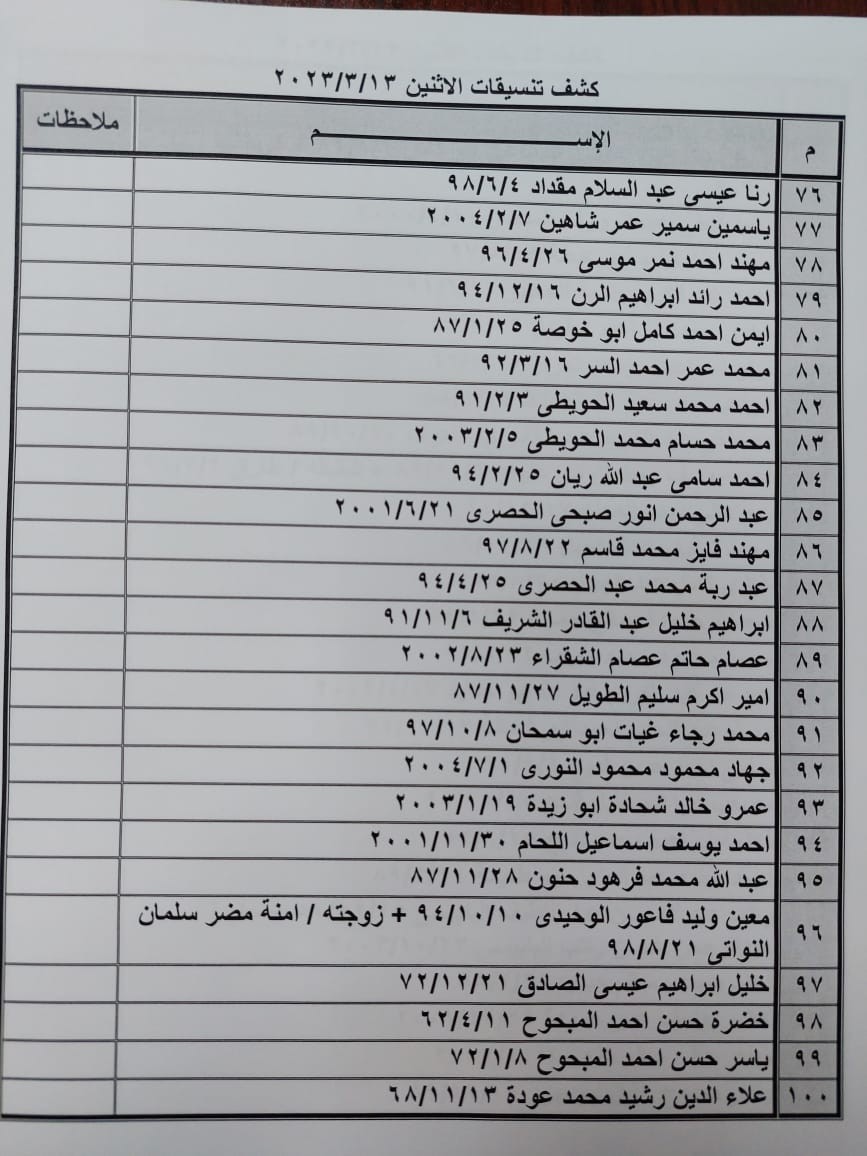 كشف تنسيقات الاثنين ٢٠٢٣/٣/١٣
م الإســـــــم ملاحظات
٧٦ رنا عيسى عبد السلام مقداد ٩٨/٦/٤
٧٧ ياسمين سمير عمر شاهين ٢٠٠٤/٢/٧
٧٨ مهند احمد نمر موسى ٩٦/٤/٢٦
٧٩ احمد رائد ابراهيم الرن ٩٤/١٢/١٦
٨٠ ايمن احمد كامل ابو خوصة ٨٧/١/٢٥
٨١ محمد عمر احمد السر ٩٢/٣/١٦
٨٢ احمد محمد سعيد الحويطى ٩١/٢/٣
٨٣ محمد حسام محمد الحويطى ٢٠٠٣/٢/٥
٨٤ احمد سامى عبد الله ريان ٩٤/٢/٢٥
٨٥ عبد الرحمن انور صبحى الحصرى ٢٠٠١/٦/٢١
٨٦ مهند فايز محمد قاسم ٩٧/٨/٢٢
٨٧ عبد ربة محمد عبد الحصرى ٩٤/٤/٢٥
٨٨ ابراهيم خليل عبد القادر الشريف ٩١/١١/٦
٨٩ عصام حاتم عصام الشقراء ٢٠٠٢/٨/٢٣
٩٠ امير اكرم سليم الطويل ٨٧/١١/٢٧
٩١ محمد رجاء غيات ابو سمحان ٩٧/١٠/٨
٩٢ جهاد محمود محمود النورى ٢٠٠٤/٧/١
٩٣ عمرو خالد شحادة ابو زيدة ٢٠٠٣/١/١٩
٩٤ احمد يوسف اسماعيل اللحام ٢٠٠١/١١/٣٠
٩٥ عبد الله محمد فرهود حنون ٨٧/١١/٢٨
٩٦ معين وليد فاعور الوحيدى ٩٤/١٠/١٠ + زوجته / امنة مضر سلمان
النواتى ٩٨/٨/٢١
٩٧ خليل ابراهيم عيسى الصادق ٧٢/١٢/٢١
٩٨ خضرة حسن احمد المبحوح ٦٢/٤/١١
٩٩ ياسر حسن احمد المبحوح ٧٢/١/٨
١٠٠ علاء الدين رشيد محمد عودة ٦٨/١١/١٣